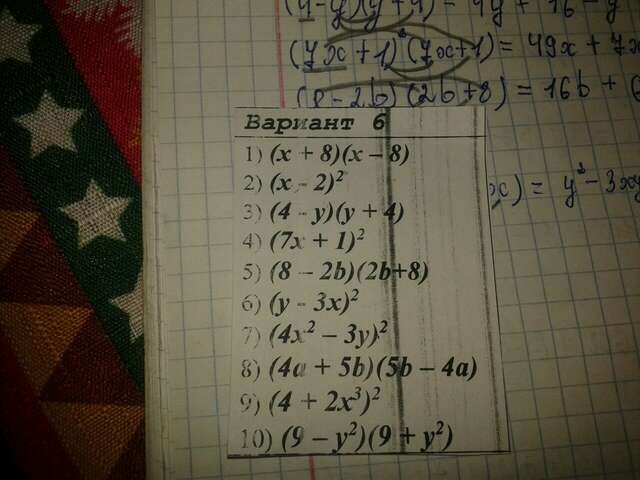 (4-y)(y+4) = 4y + 16 - y
(7x+1)²(7x+1) = 49x + 7x
(8-2b)(2b+8) = 16b + 6
Вариант 6
1) (x + 8)(x – 8)
2) (x - 2)²
x) = y² - 3xy
3) (4 - y)(y + 4)
4) (7x + 1)²
5) (8 – 2b)(2b+8)
6) (y – 3x)²
7) (4x² – 3y)²
8) (4a + 5b)(5b – 4a)
9) (4 + 2x³)²
10) (9 – y²)(9 + y²)